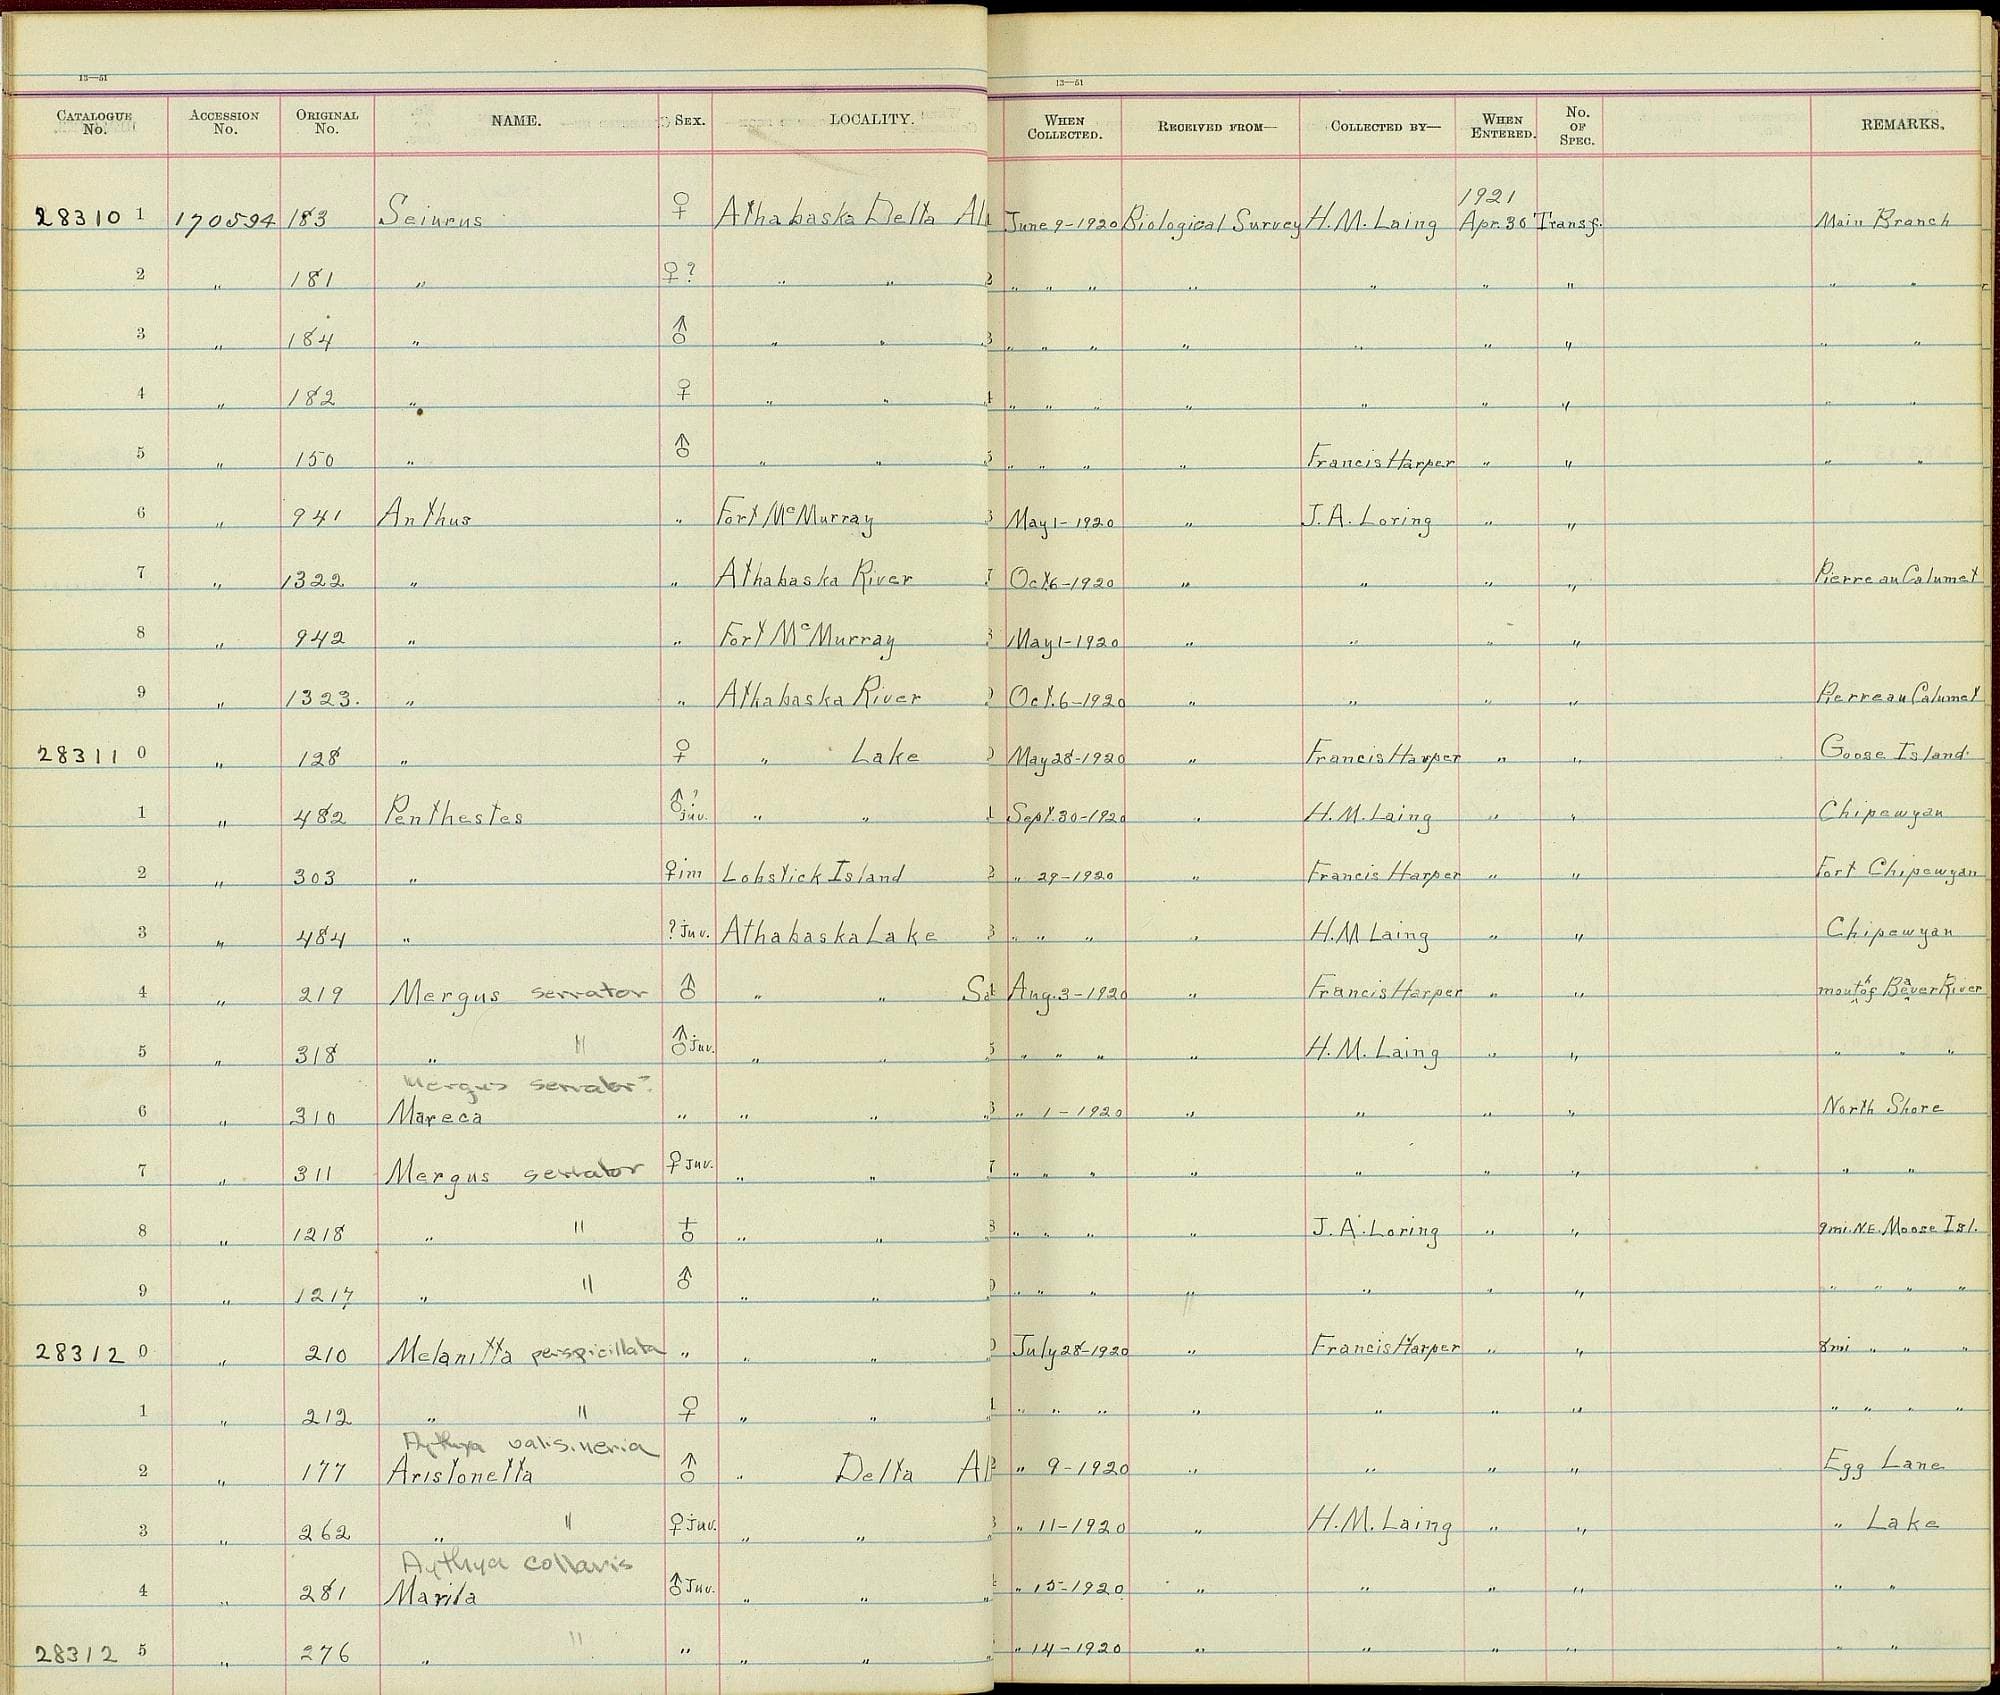 13—51
13—51
CATALOGUE No. ACCESSION No. ORIGINAL No. NAME. SEX. LOCALITY. WHEN COLLECTED. RECEIVED FROM— COLLECTED BY— WHEN ENTERED. No. OF SPEC. REMARKS.
1921
28310 1 170594 183 Seiurus ♀ Athabaska Delta June 9-1920 Biological Survey H.M. Laing Apr. 30 Transf. Main Branch
2 " 181 " ♀? " " 2 " " " " " " " " "
3 " 184 " ♂ " " " 3 " " " " " " " " "
4 " 182 " ♀ " " 4 " " " " " " " " "
5 " 150 " ♂ " " 5 " " " " Francis Harper " " " "
6 " 941 Anthus " Fort McMurray May 1-1920 " J.A. Loring " "
7 " 1322 " " Athabaska River Oct. 6-1920 " " " " Pierre au Calumet
8 " 942 " " Fort McMurray May 1-1920 " " " "
9 " 1323. " " Athabaska River Oct. 6-1920 " " " " Pierre au Calumet
28311 0 " 128 " ♀ " Lake May 28-1920 " Francis Harper " " Goose Island
1 " 482 Penthestes ♂? juv. " " 1 Sept. 30-1920 " H.M. Laing " " Chipewyan
2 " 303 " ♀im Lobstick Island 2 " 29-1920 " Francis Harper " " Fort Chipewyan
3 " 484 " ? Juv. Athabaska Lake 3 " " " " H.M Laing " " Chipewyan
4 " 219 Mergus serrator ♂ " " Aug. 3-1920 " Francis Harper " " mouth of Beaver River
5 " 318 " " ♂ Juv. " " 5 " " " " H.M. Laing " " " " "
Mergus serrator?
6 " 310 Mareca " " " " " 1-1920 " " " " North Shore
7 " 311 Mergus serrator ♀ Juv. " " 7 " " " " " " " " "
8 " 1218 " " " " " " " " J.A. Loring " " 9mi. N.E. Moose Isl.
9 " 1217 " " ♂ " " " " " " " " " " " " "
28312 0 " 210 Melanitta perspicillata " " " July 28-1920 " Francis Harper " " 8mi " " "
1 " 212 " " ♀ " " 1 " " " " " " " " " " "
Aythya valisineria
2 " 177 Aristonetta ♂ " Delta " 9-1920 " " " " Egg Lane
3 " 262 " " ♀ juv. " " " 11-1920 " H.M. Laing " " " Lake
Aythya collaris
4 " 281 Marila ♂ Juv. " " " " 15-1920 " " " " " "
28312 5 " 276 " " " " " " " 14-1920 " " " " " "